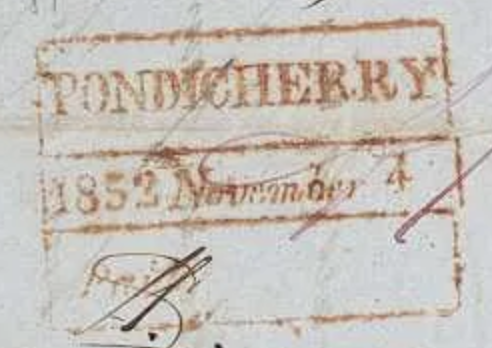 PONDICHERRY
1852 November 4